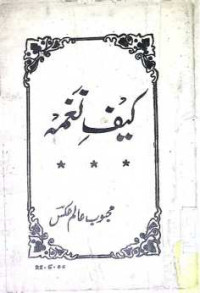 کیفِ نغمہ
* * *
محبوب عالم عکس